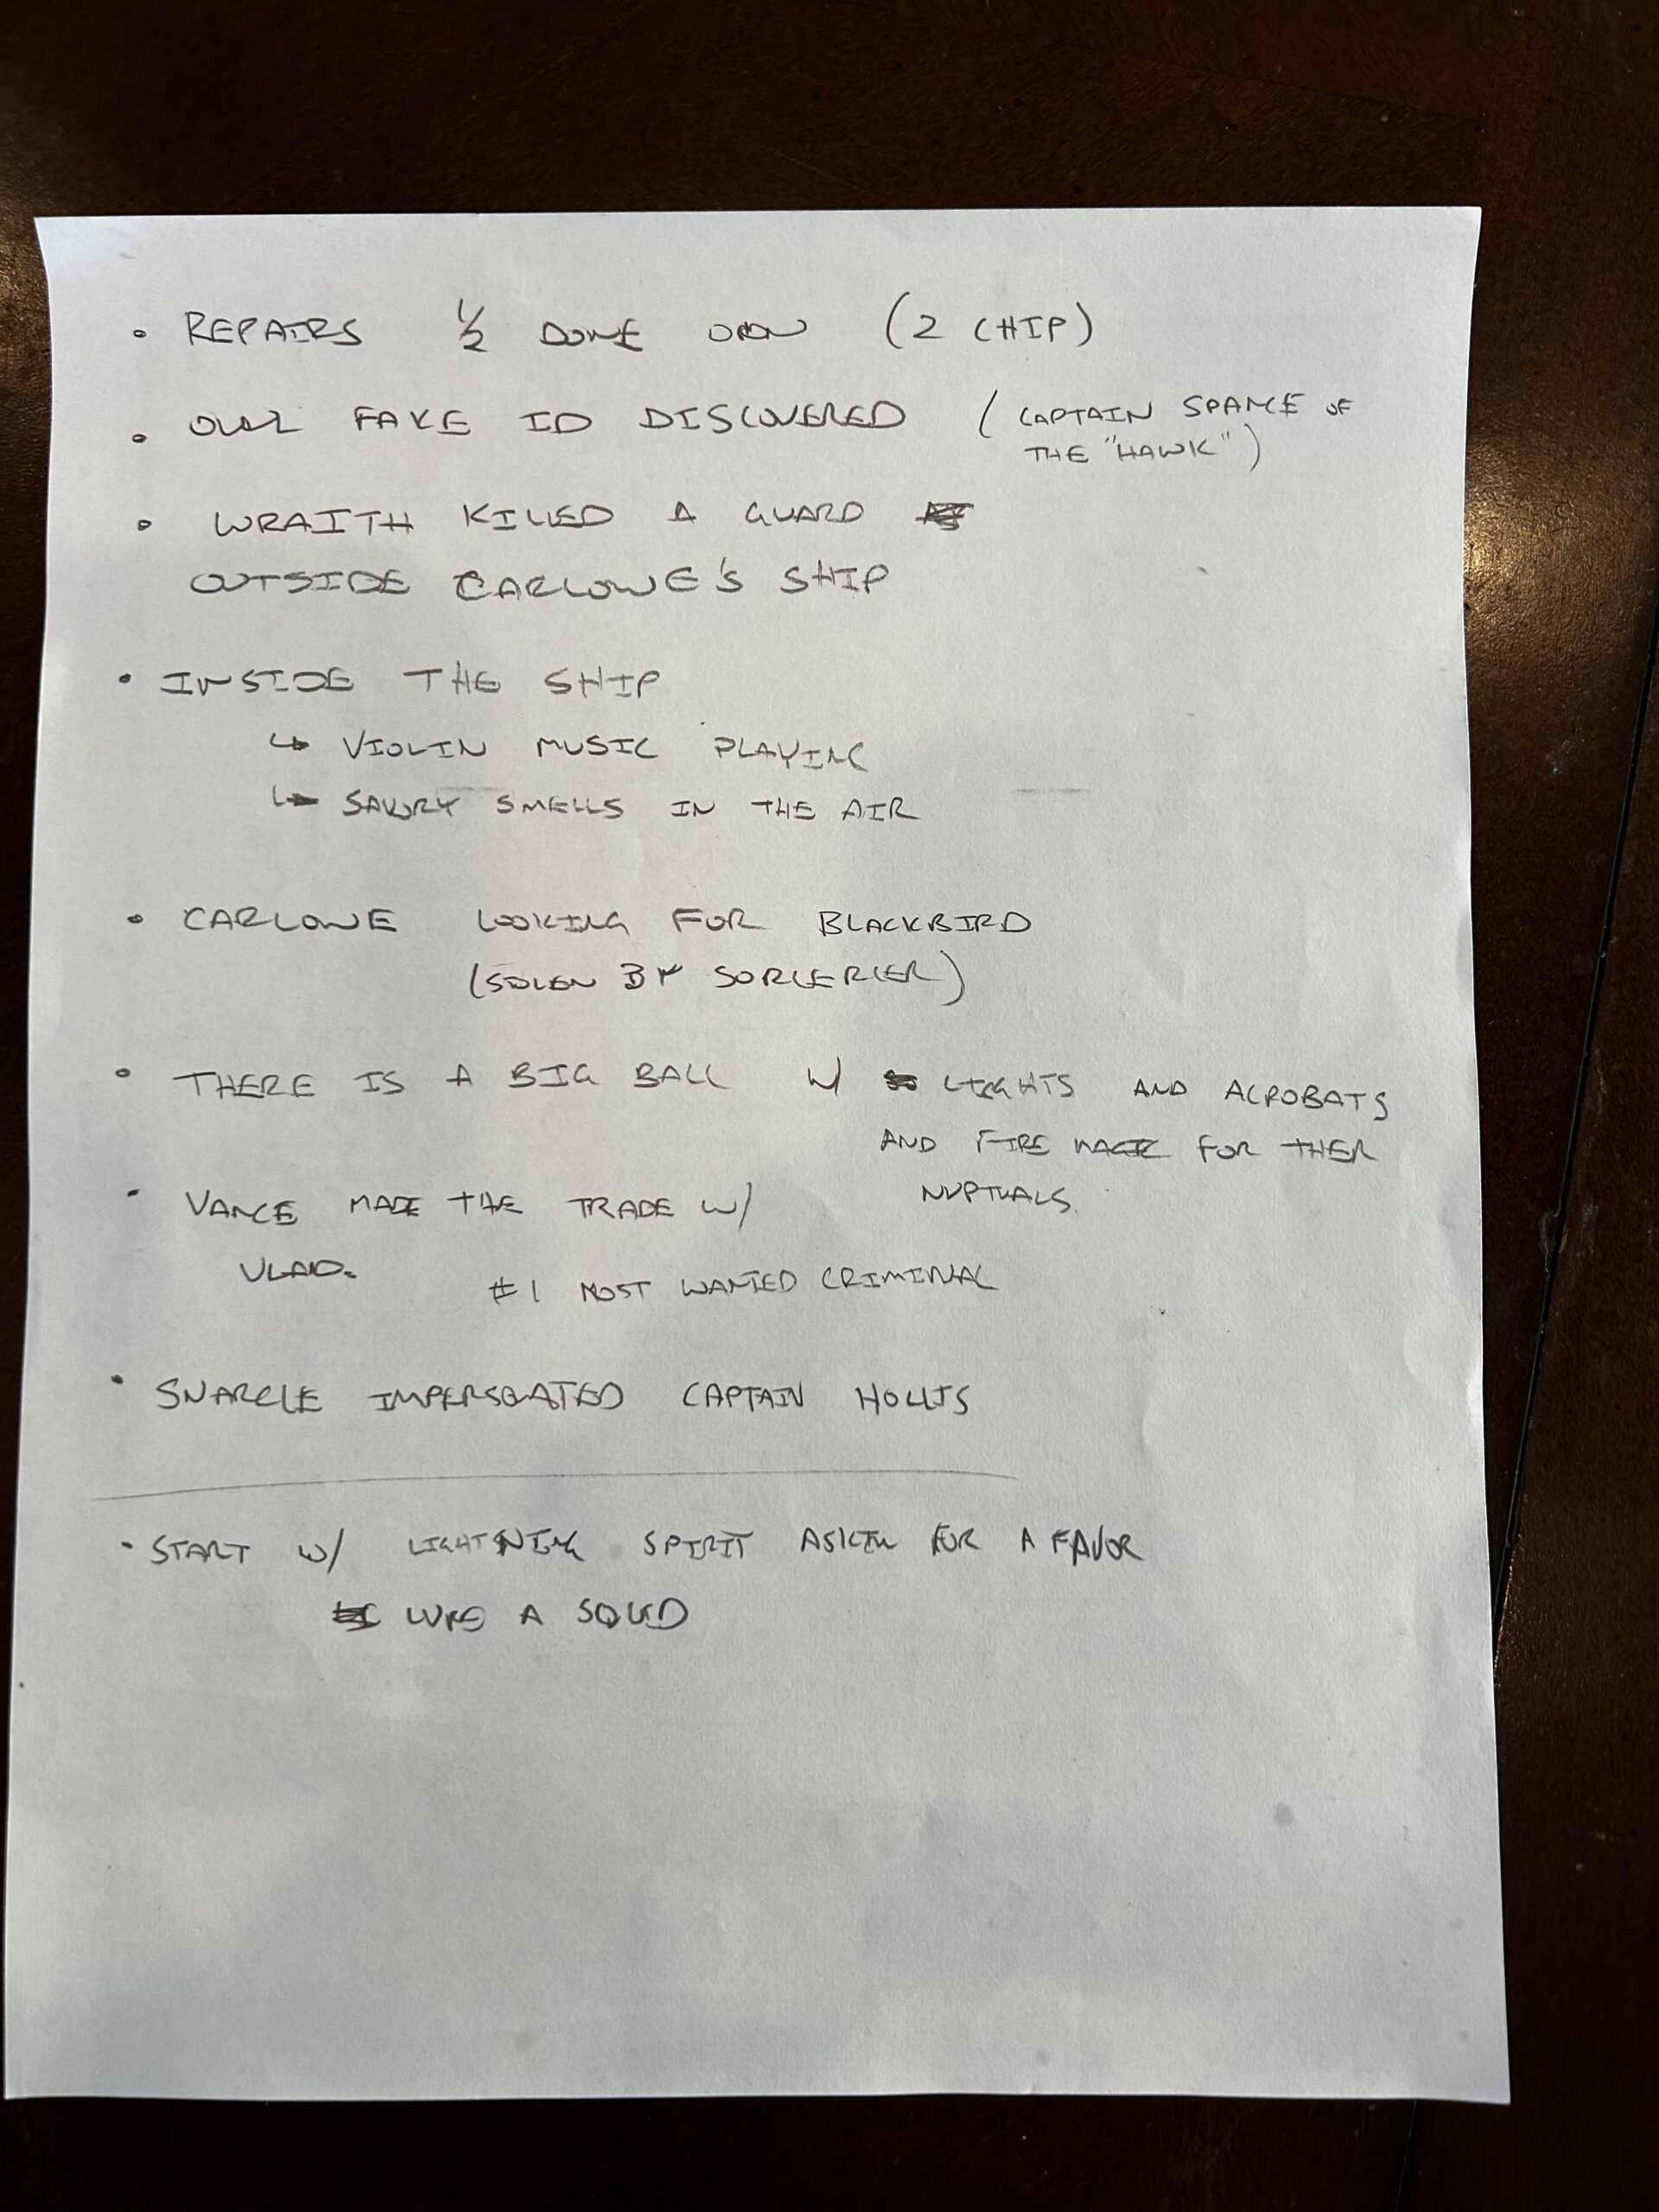 • REPAIRS 1/2 DONE (2 CHIP)
• OUR FAKE ID DISCOVERED (CAPTAIN SPANCE OF
THE "HAWK")
• WRAITH KILLED A GUARD
OUTSIDE CARLOWE'S SHIP
• INSIDE THE SHIP
↳ VIOLIN MUSIC PLAYING
↳ SAVORY SMELLS IN THE AIR
• CARLOWE LOOKING FOR BLACKBIRD
(STOLEN BY SORCERER)
• THERE IS A BIG BALL W/ LIGHTS AND ACROBATS
AND FIRE MAGIC FOR THER
NUPTUALS.
• VANCE MADE THE TRADE W/
VLAD.
#1 MOST WANTED CRIMINAL
• SNARCLE IMPERSONATED CAPTAIN HOLLIS
• START W/ LIGHTNING SPIRIT ASKIN FOR A FAVOR
A SQUID